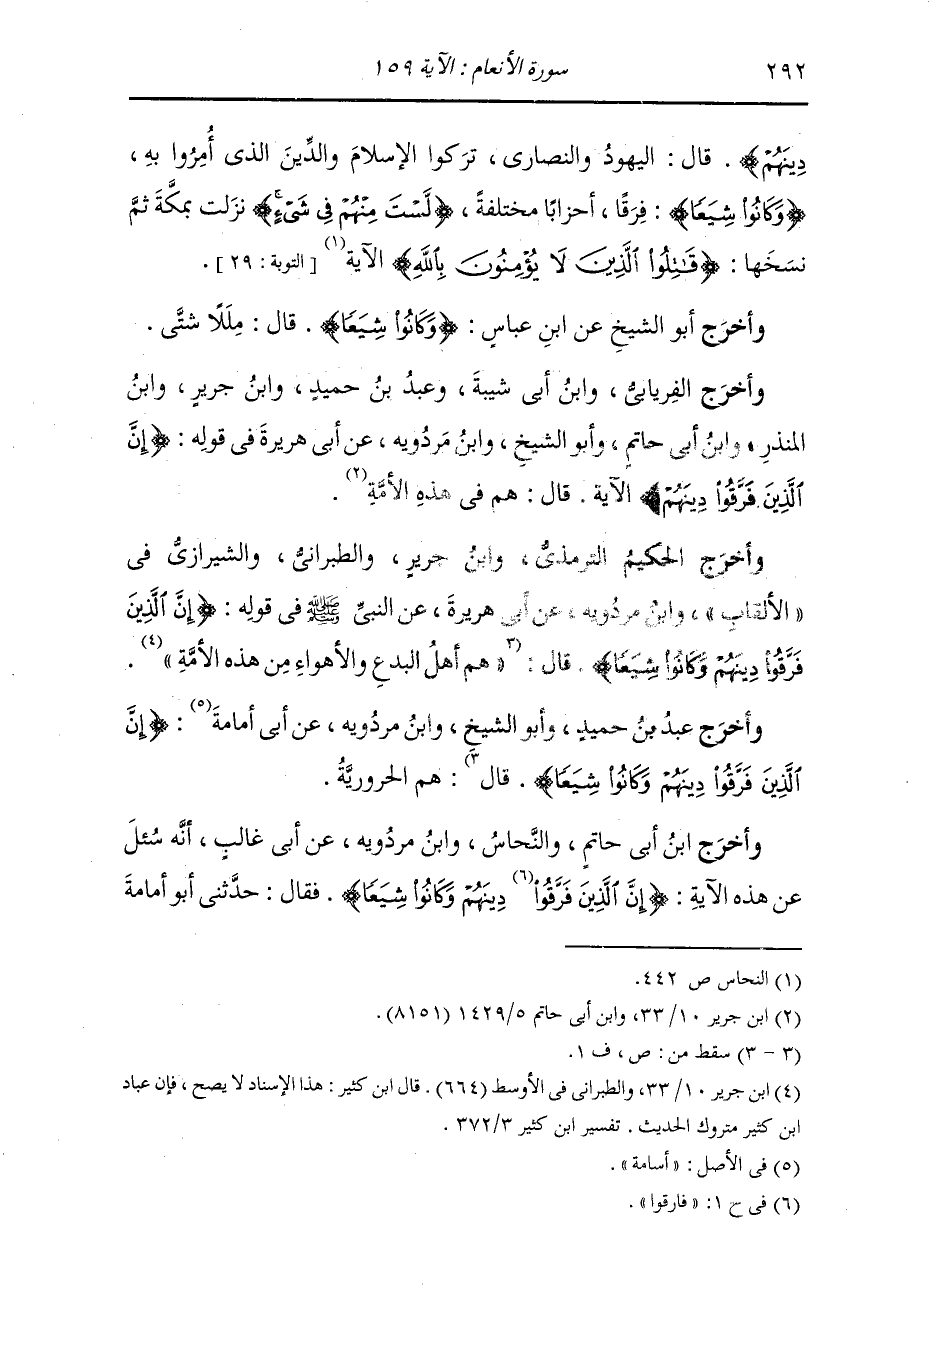 ٢٩٢ سورة الأنعام : الآية ١٥٩
دِينَهُمْ﴾ . قال : اليهودُ والنصارى ، ترَكوا الإسلامَ والدِّينَ الذى أُمِرُوا بهِ ،
﴿وَكَانُوا۟ شِيَعًا﴾ : فِرَقًا ، أحزابًا مختلفةً ، ﴿لَّسْتَ مِنْهُمْ فِى شَىْءٍ﴾ نزَلت بمكَّةَ ثمَّ
نسَخَها : ﴿قَـٰتِلُوا۟ ٱلَّذِينَ لَا يُؤْمِنُونَ بِٱللَّهِ﴾ الآية(١) [ التوبة : ٢٩ ] .
وأخرَج أبو الشيخِ عن ابنِ عباسٍ : ﴿وَكَانُوا۟ شِيَعًا﴾ . قال : مِلَلًا شتَّى .
وأخرَج الفِريابىُّ ، وابنُ أبى شيبةَ ، وعبدُ بنُ حميدٍ ، وابنُ جريرٍ ، وابنُ
المنذرِ ، وابنُ أبى حاتمٍ ، وأبو الشيخِ ، وابنُ مَردُويه ، عن أبى هريرةَ فى قولِه : ﴿إِنَّ
ٱلَّذِينَ فَرَّقُوا۟ دِينَهُمْ﴾ الآية . قال : هم فى هذهِ الأمَّةِ(٢) .
وأخرَج الحكيمُ الترمذىُّ ، وابنُ جريرٍ ، والطبرانىُّ ، والشيرازىُّ فى
« الألقابِ » ، وابنُ مردُويه ، عن أبى هريرةَ ، عن النبىِّ ﷺ فى قولِه : ﴿إِنَّ ٱلَّذِينَ
فَرَّقُوا۟ دِينَهُمْ وَكَانُوا۟ شِيَعًا﴾ . قال : (٣« هم أهلُ البدعِ والأهواءِ مِن هذه الأمَّةِ »(٤) .
وأخرَج عبدُ بنُ حميدٍ ، وأبو الشيخِ ، وابنُ مردُويه ، عن أبى أمامةَ(٥) : ﴿إِنَّ
ٱلَّذِينَ فَرَّقُوا۟ دِينَهُمْ وَكَانُوا۟ شِيَعًا﴾ . قال٣) : هم الحروريَّةُ .
وأخرَج ابنُ أبى حاتمٍ ، والنَّحاسُ ، وابنُ مردُويه ، عن أبى غالبٍ ، أنَّه سُئلَ
عن هذه الآيةِ : ﴿إِنَّ ٱلَّذِينَ فَرَّقُوا۟(٦) دِينَهُمْ وَكَانُوا۟ شِيَعًا﴾ . فقال : حدَّثنى أبو أمامةَ
(١) النحاس ص ٤٤٢.
(٢) ابن جرير ١٠/ ٣٣، وابن أبى حاتم ١٤٢٩/٥ (٨١٥١).
(٣ - ٣) سقط من : ص ، ف ١.
(٤) ابن جرير ١٠/ ٣٣، والطبرانى فى الأوسط (٦٦٤) . قال ابن كثير : هذا الإسناد لا يصح ، فإن عباد
ابن كثير متروك الحديث . تفسير ابن كثير ٣٧٢/٣ .
(٥) فى الأصل : « أسامة » .
(٦) فى ح ١ : « فارقوا » .